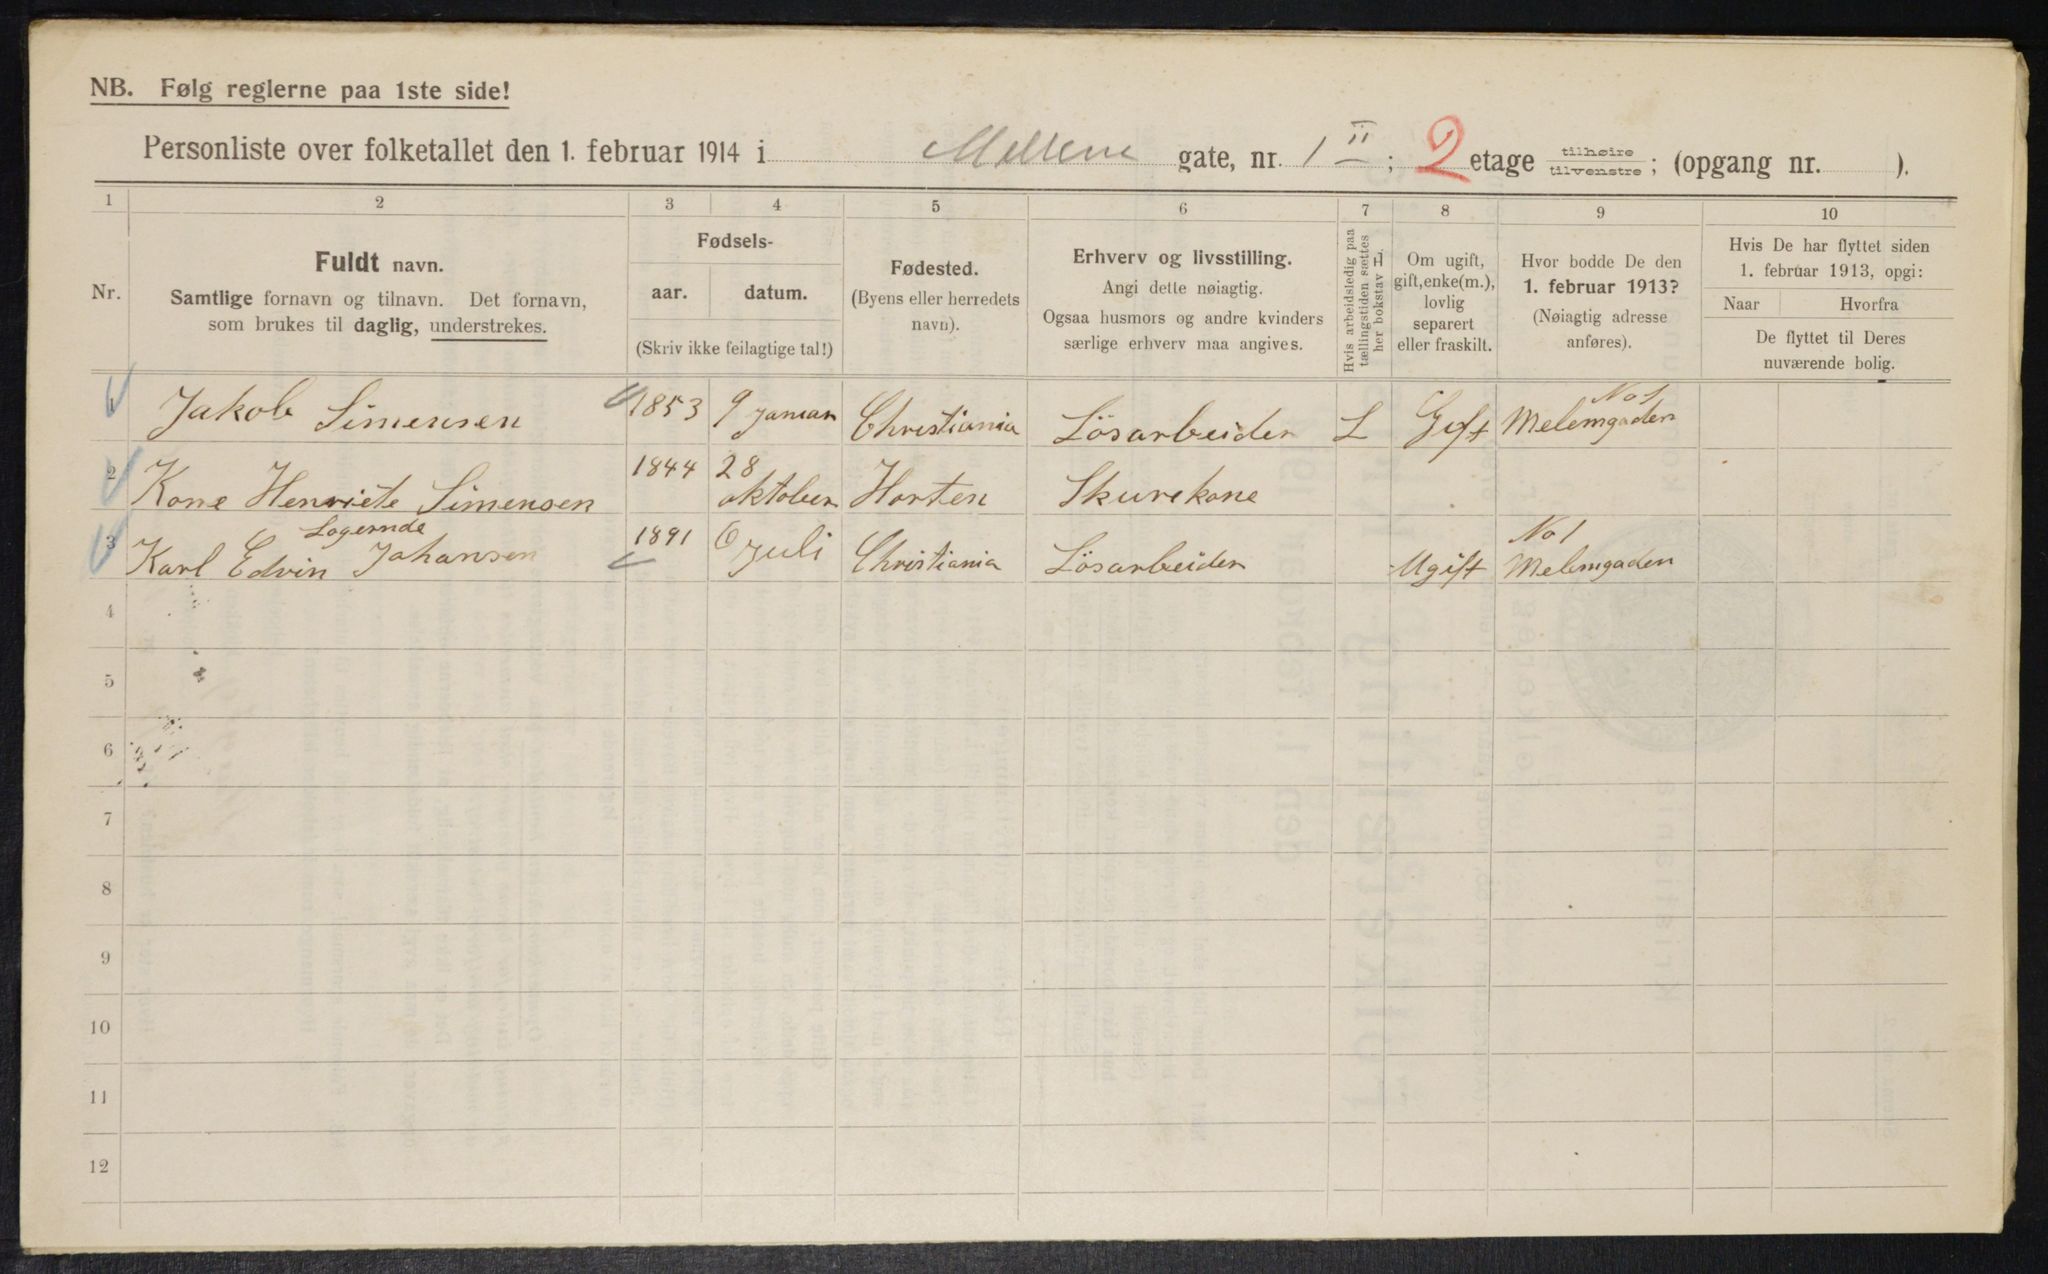 NB. Følg reglerne paa 1ste side!
Personliste over folketallet den 1. februar 1914 i gate, nr. 1 II; 2 etage tilhøire tilvenstre; (opgang nr. ).
1 2 3 4 5 6 7 8 9 10
Nr.
Fuldt navn.
Samtlige fornavn og tilnavn. Det fornavn,
som brukes til daglig, understrekes.
Fødsels-
aar. datum.
(Skriv ikke feilagtige tal!)
Fødested.
(Byens eller herredets
navn).
Erhverv og livsstilling.
Angi dette nøiagtig.
Ogsaa husmors og andre kvinders
særlige erhverv maa angives.
Hvis arbeidsledig paa
tællingstiden sættes
her bokstav L.
Om ugift,
gift, enke(m.),
lovlig
separert
eller fraskilt.
Hvor bodde De den
1. februar 1913?
(Nøiagtig adresse
anføres).
Hvis De har flyttet siden
1. februar 1913, opgi:
Naar Hvorfra
De flyttet til Deres
nuværende bolig.
1 Jakob Simensen 1853 9 januar Christiania Lösarbeider L Gift No 1 Melemgaden
2 Kone Henriete Simensen 1844 28 oktober Horten Skurekone
Logernde
3 Karl Edvin Johansen 1891 6 juli Christiania Lösarbeider Ugift No 1 Melemgaden
4
5
6
7
8
9
10
11
12